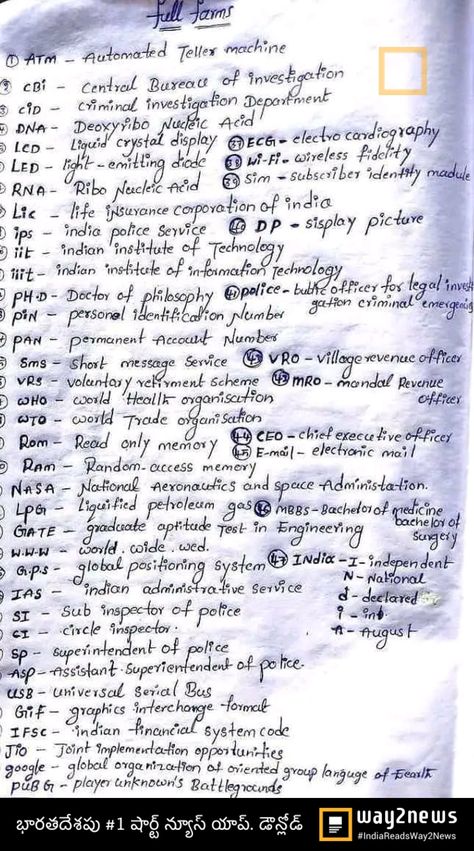 full farms
① ATM - Automated Teller machine
② CBI - central Bureau of investigation
③ CID - criminal investigation Department
DNA - Deoxyribo Nucleic Acid
LCD - Liquid crystal display ㊲ ECG - electro cardiography
LED - light-emitting diode ㊳ Wi-Fi - wireless fidelity
RNA - Ribo Nucleic Acid ㊴ Sim - subscriber identity madule
Lic - life insurance corporation of india
ips - india police Service ㊵ DP - sisplay picture
iit - indian institute of Technology
iiit - indian institute of information Technology
PH.D - Doctor of philosophy ㊶ police - officer for legal investi
gation criminal emergencies
PIN - personal identification Number
PAN - permanent Account Number
Sms - Short message Service ㊷ VRO - village revenue officer
VRS - voluntary retirment scheme ㊸ MRO - mandal Revenue
officer
WHO - world Health organisation
WTO - world Trade organisation
Rom - Read only memory ㊹ CEO - chief executive officer
Ram - Random-access memory ㊺ E-mail - electronic mail
NASA - National Aeronautics and space Administation.
LPG - liquified petroleum gas ㊻ MBBS - Bachelor of medicine
bachelor of
surgery
GATE - graduate aptitude Test in Engineering
W.W.W - world.wide.wed.
G.P.S - global positioning system ㊼ INdia - I - independent
N - National
IAS - indian administrative service
d - declared
SI - Sub inspector of police
i - in
CI - circle inspector.
A - August
SP - superintendent of police
ASP - Assistant.Superientendent of police.
USB - universal Serial Bus
Gif - graphics interchange format
IFSC - indian financial system code
Jio - Joint implementation opportunities
google - global organization of oriented group languge of Eearth
PUBG - player unknown's Battlegrounds
భారతదేశపు #1 షార్ట్ న్యూస్ యాప్. డౌన్లోడ్
way2news
#IndiaReadsWay2News